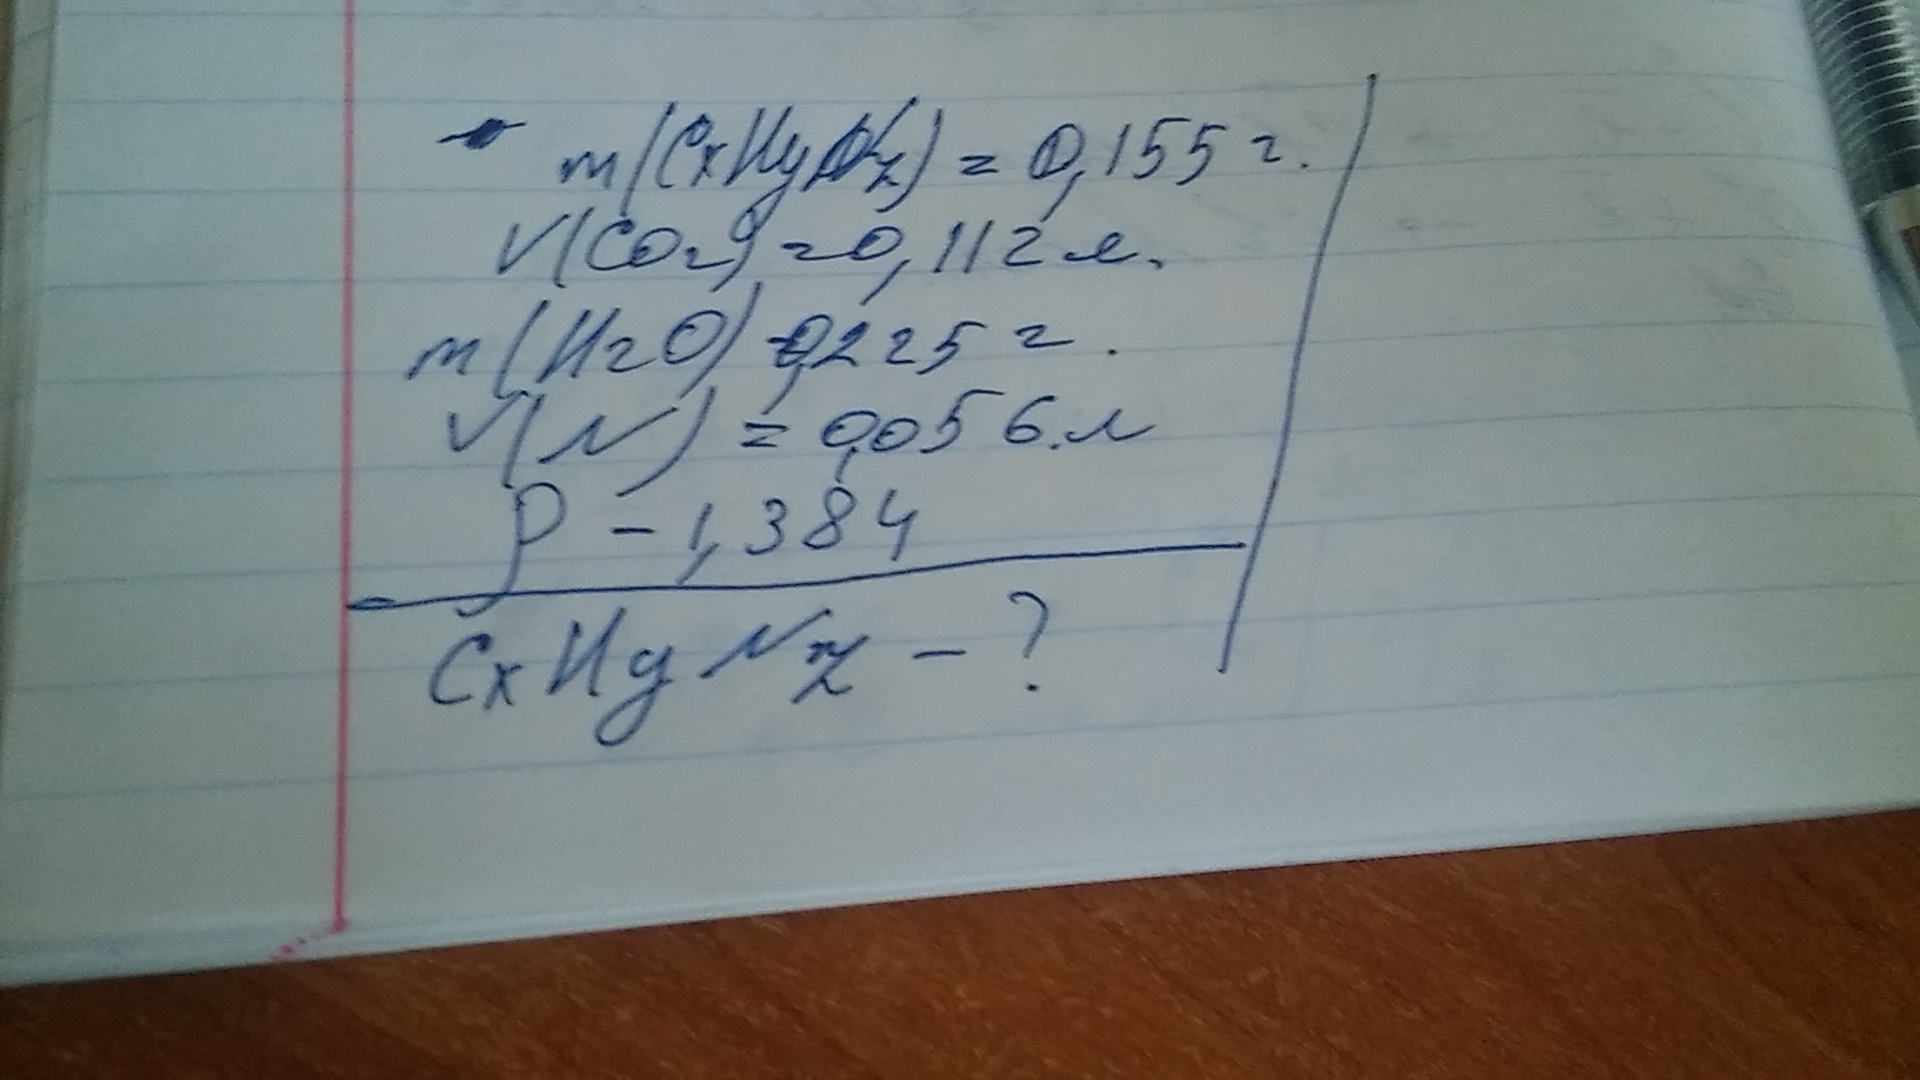 m(CxHyNz) = 0,155 г.
V(CO2) = 0,112 л.
m(H2O) = 0,225 г.
V(N) = 0,056 л
ρ - 1,384
CxHyNz - ?